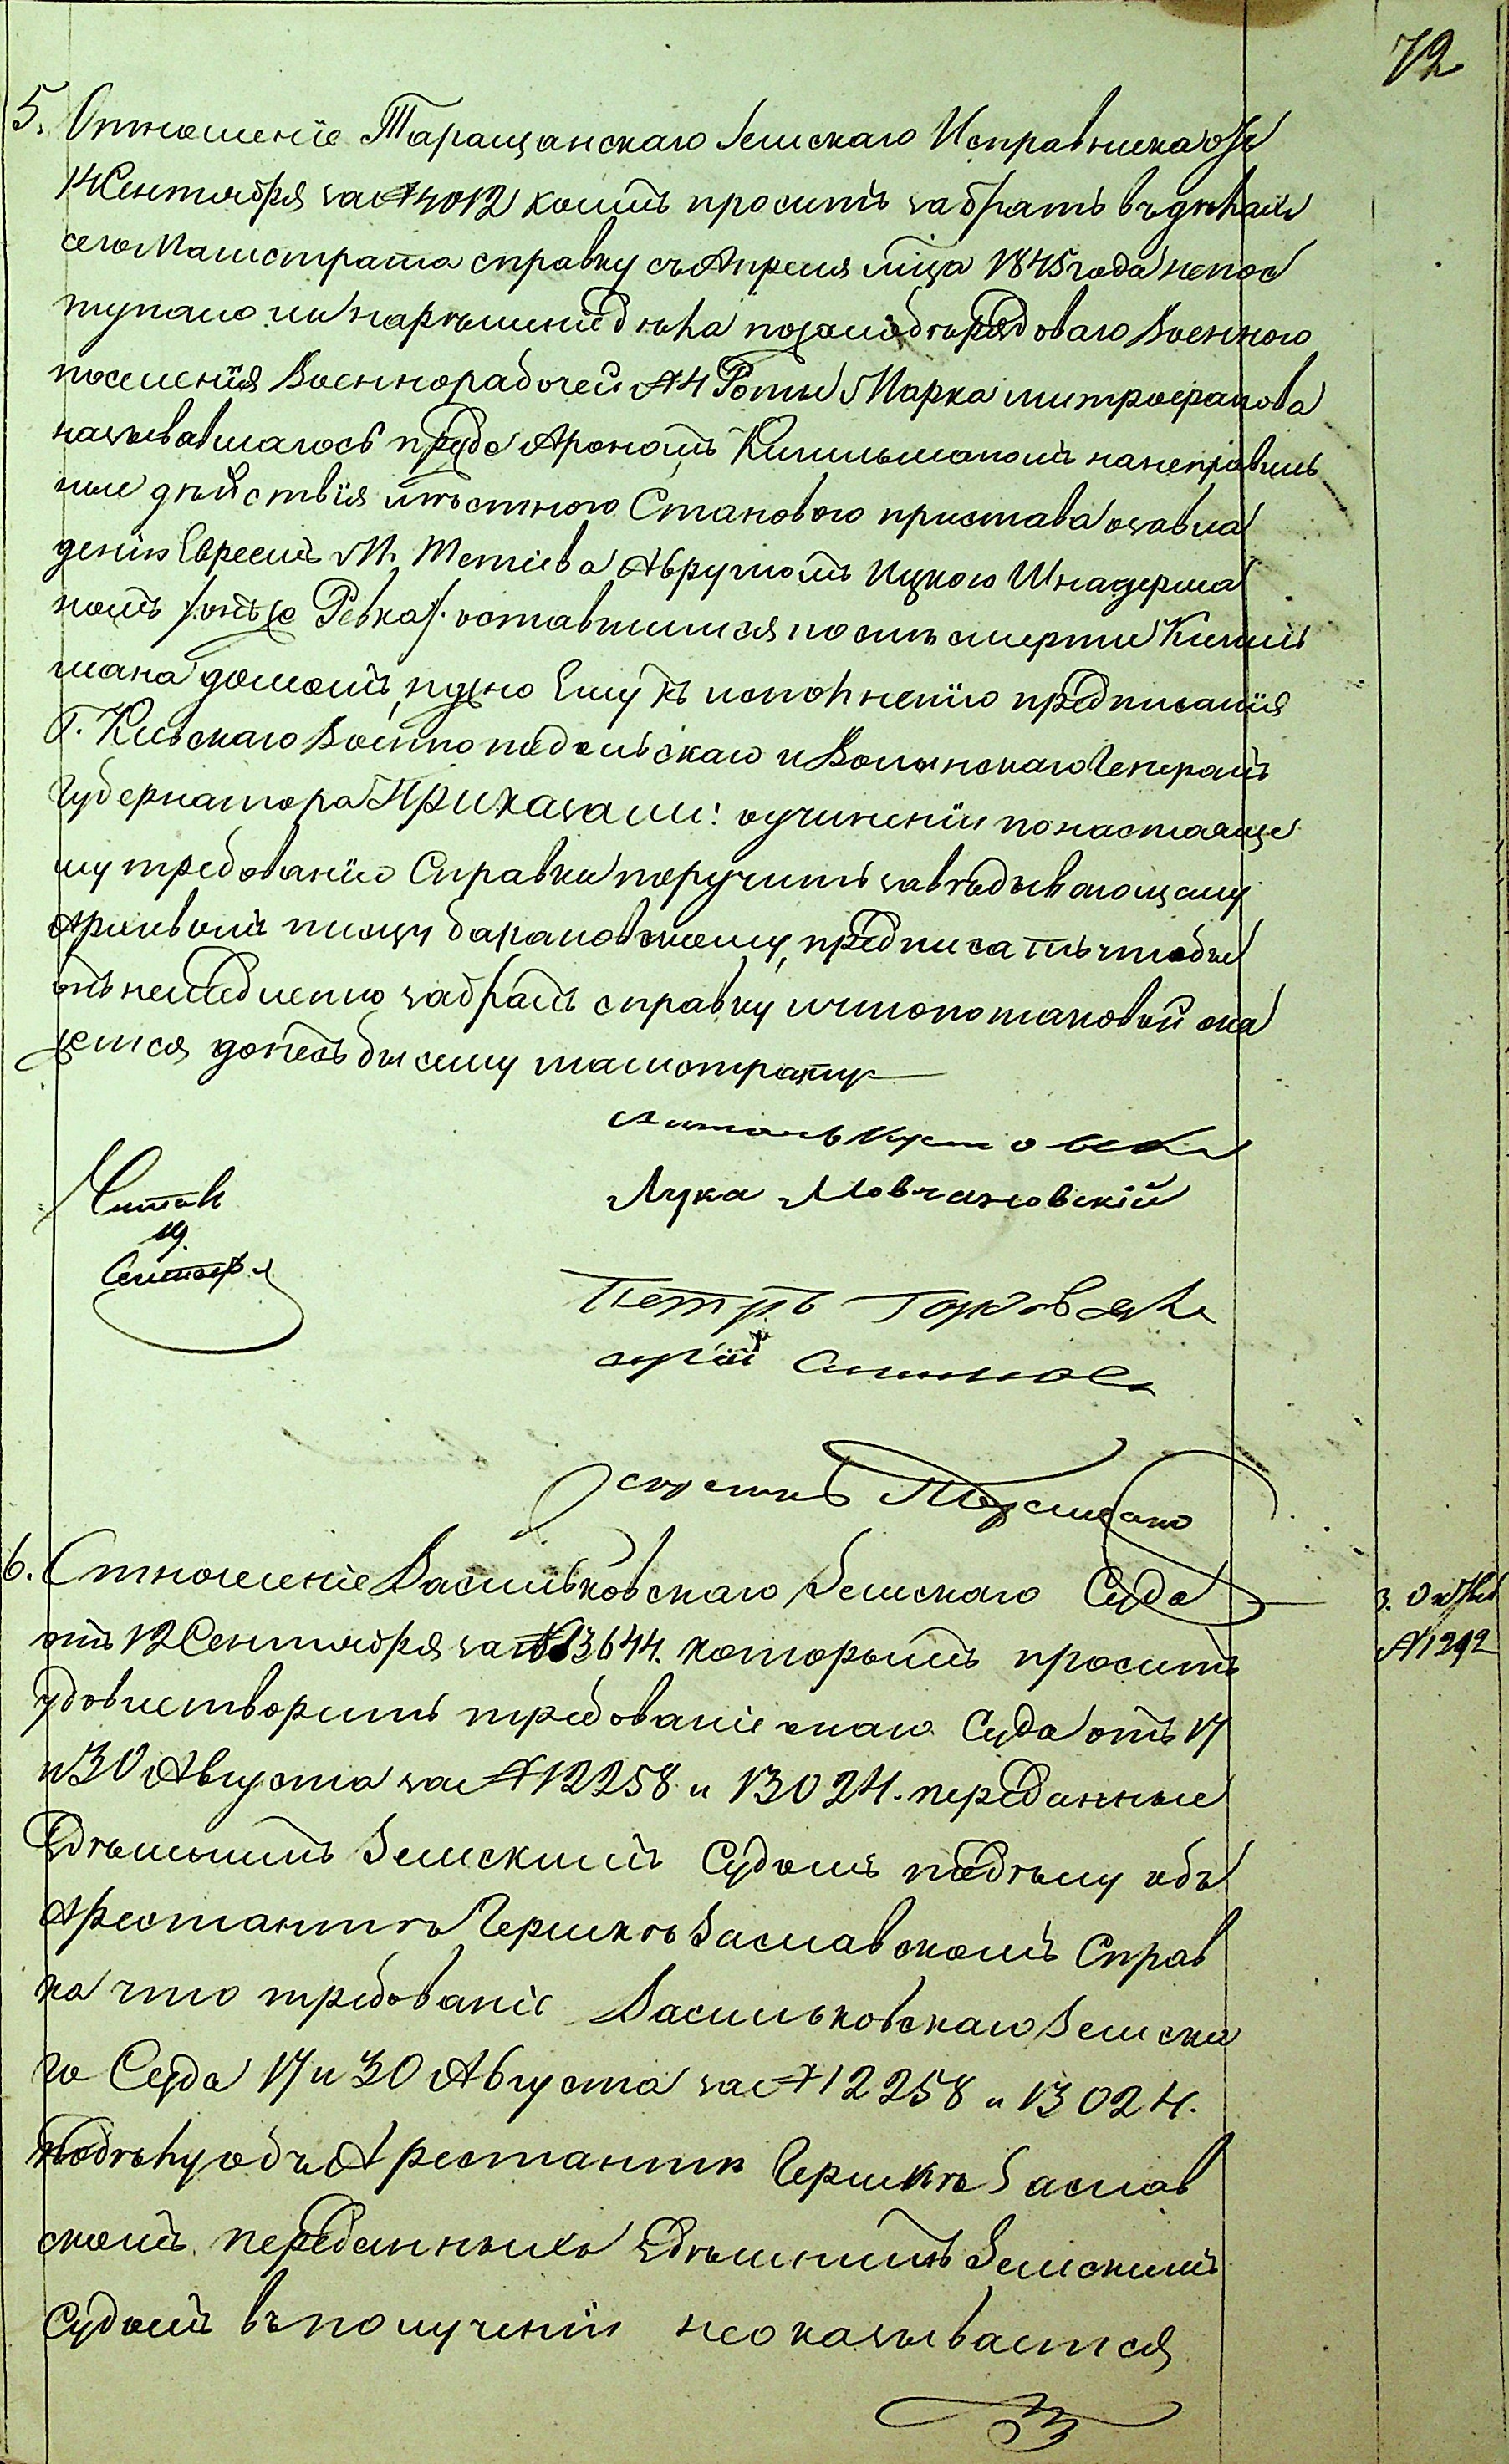 72
5. Отношеніе Таращанскаго Земскаго Исправника отъ
14 Сентября за № 4012 коимъ проситъ забрать въ дѣлахъ
сего Магистрата справку съ Апреля мца 1845 года непос
тупало ли на рѣшеніе дѣла по жалобѣ рядоваго Военнаго
поселенія Военнорабочей № 4 Роты Марка Митрофанова
называвшагось прежде Арономъ Кишльманомъ на неправиль
ные дѣйствія мѣстного Становаго пристава о завла
деніи Евреемъ М. Тетіева Аврумомъ Ицкою Шнадерма
номъ /: онъ же Ревка /: оставшимся послѣ смерти
мана домомъ, нужно Ему къ исполненію предписанія
Г. Кіевскаго Военно подольскаго и Волынскаго Генералъ
Губернатора Приказали: о учиненіи по настояще
му требованію Справки поручить завѣдывающему
Архивомъ писцу Барановскому, предписать чтобы
онъ немедленно забралъ справку и что по таковой ока
жется донесъ бы сему магистрату
Лука Мовчановскій
Читалъ
19.
Сентяб.
Петръ
6. Отношеніе Васильковскаго Земскаго Суда
отъ 12 Сентября за № 13644. которымъ проситъ
удовлетворить требованіе онаго Суда отъ 17
и 30 Августа за № 12258 и 13024. переданные
Здѣшнимъ Земскимъ Судомъ по дѣлу объ
Арестантѣ Гершкѣ Заславскомъ Справ
ка что требованіе Васильковскаго Земска
го Суда 17 и 30 Августа за № 12258 и 13024.
по дѣлу объ Арестантѣ Гершкѣ Заслав
скомъ переданныхъ Здѣшнимъ Земскимъ
Судомъ въ полученіи неоказывается
3. Октяб
№ 1292